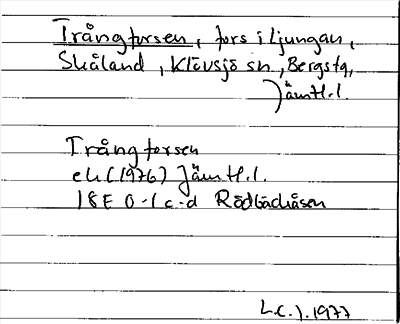 Trångforsen, fors i Ljungan,
Skåland, Klövsjö sn, Bergs tg,
Jämtl.l.
Trångforsen
ek (1976) Jämtl.l.
18E 0-1 c-d Rödbäckåsen
L.C.J. 1977